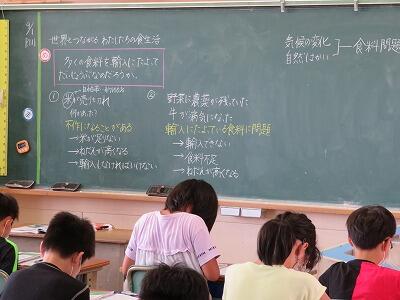 9/1
P.111
世界とつながる わたしたちの食生活
多くの食料を輸入にたよって
だいじょうぶなのだろうか。
①
米が売られ
何があった?
不作になることがある
→米が足りない
→ねだんが高くなる
→輸入しなければいけない
②
野菜に農薬が残っていた
牛が病気になった
輸入にたよっている食料に問題
→輸入できない
→食料不足
→ねだんが高くなる
気候の変化
自然はかい
食料問題